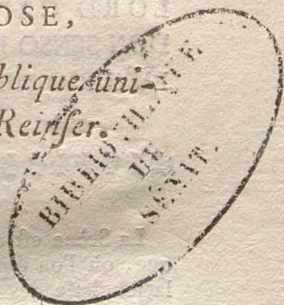 OSE,
blique uni-
Reinser.
BIBLIOTHEQUE
DE
SÉNAT.